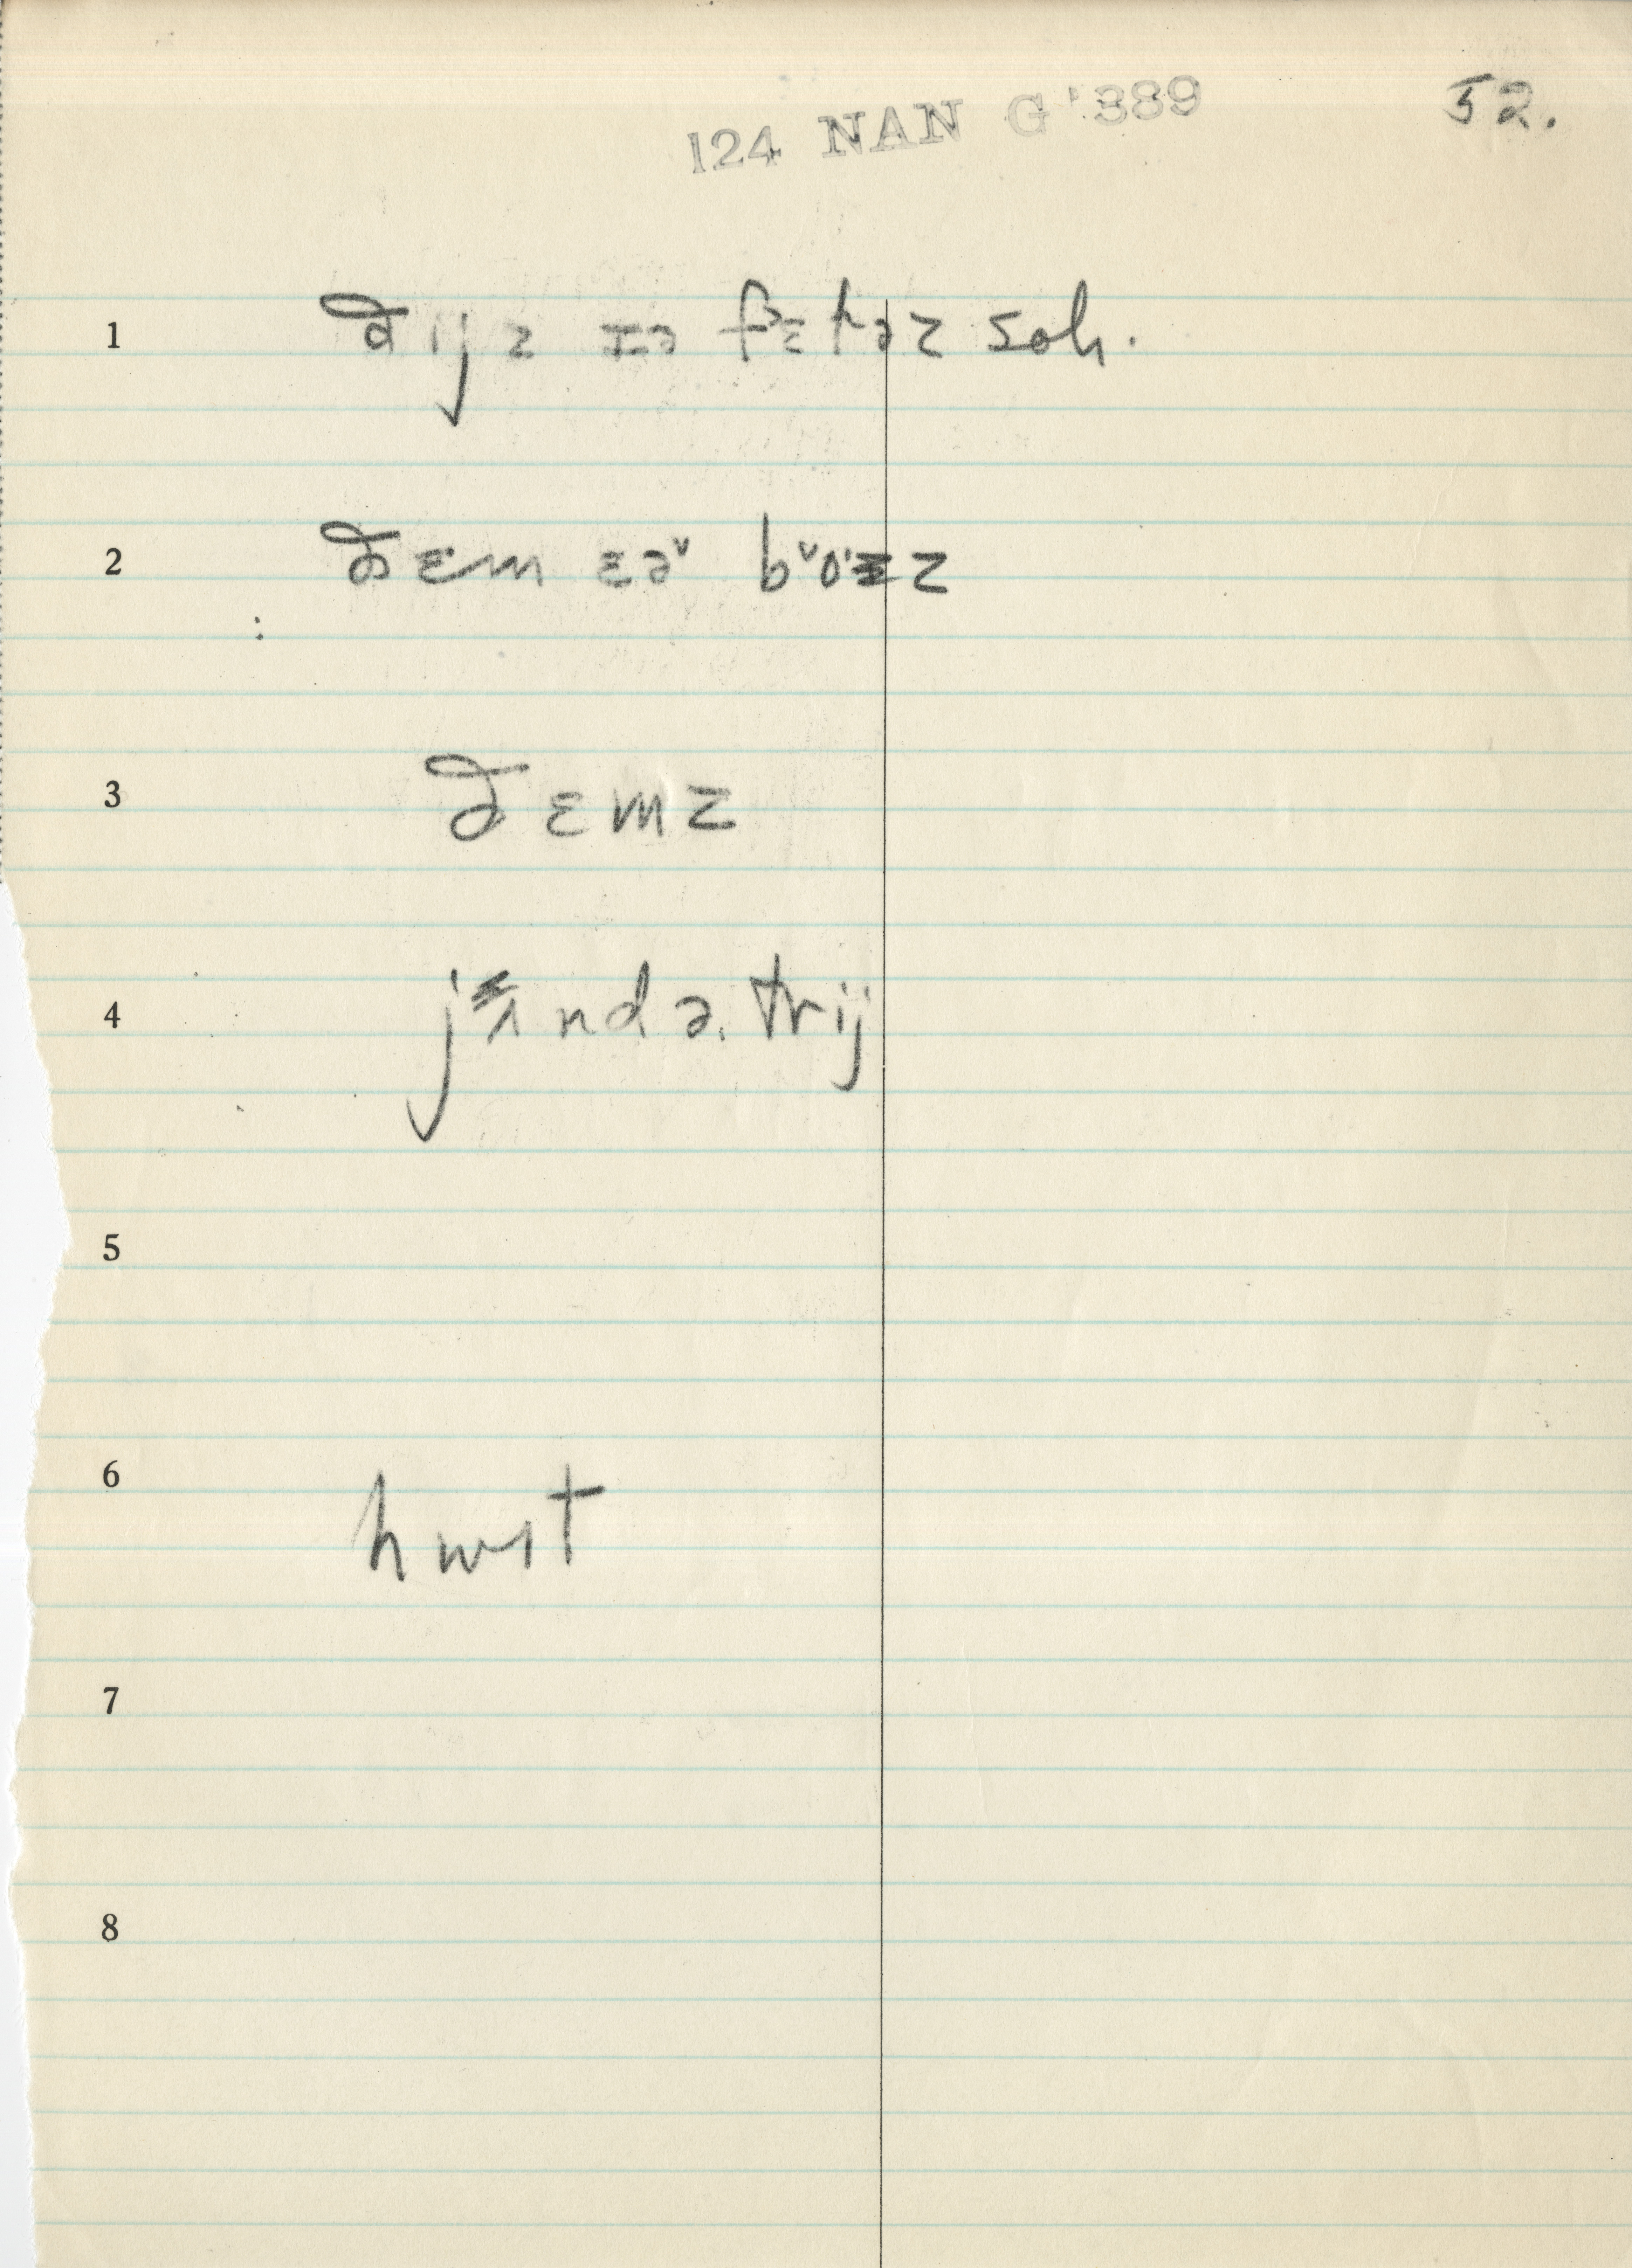 124 NAN G '389
52.
1 ðijz ɪə βɛtəz soh.
2 ðɛm ɛəˇ bˇoɪz
3 ðɛmz
4 jɪndə trij
5
6 hwɪt
7
8